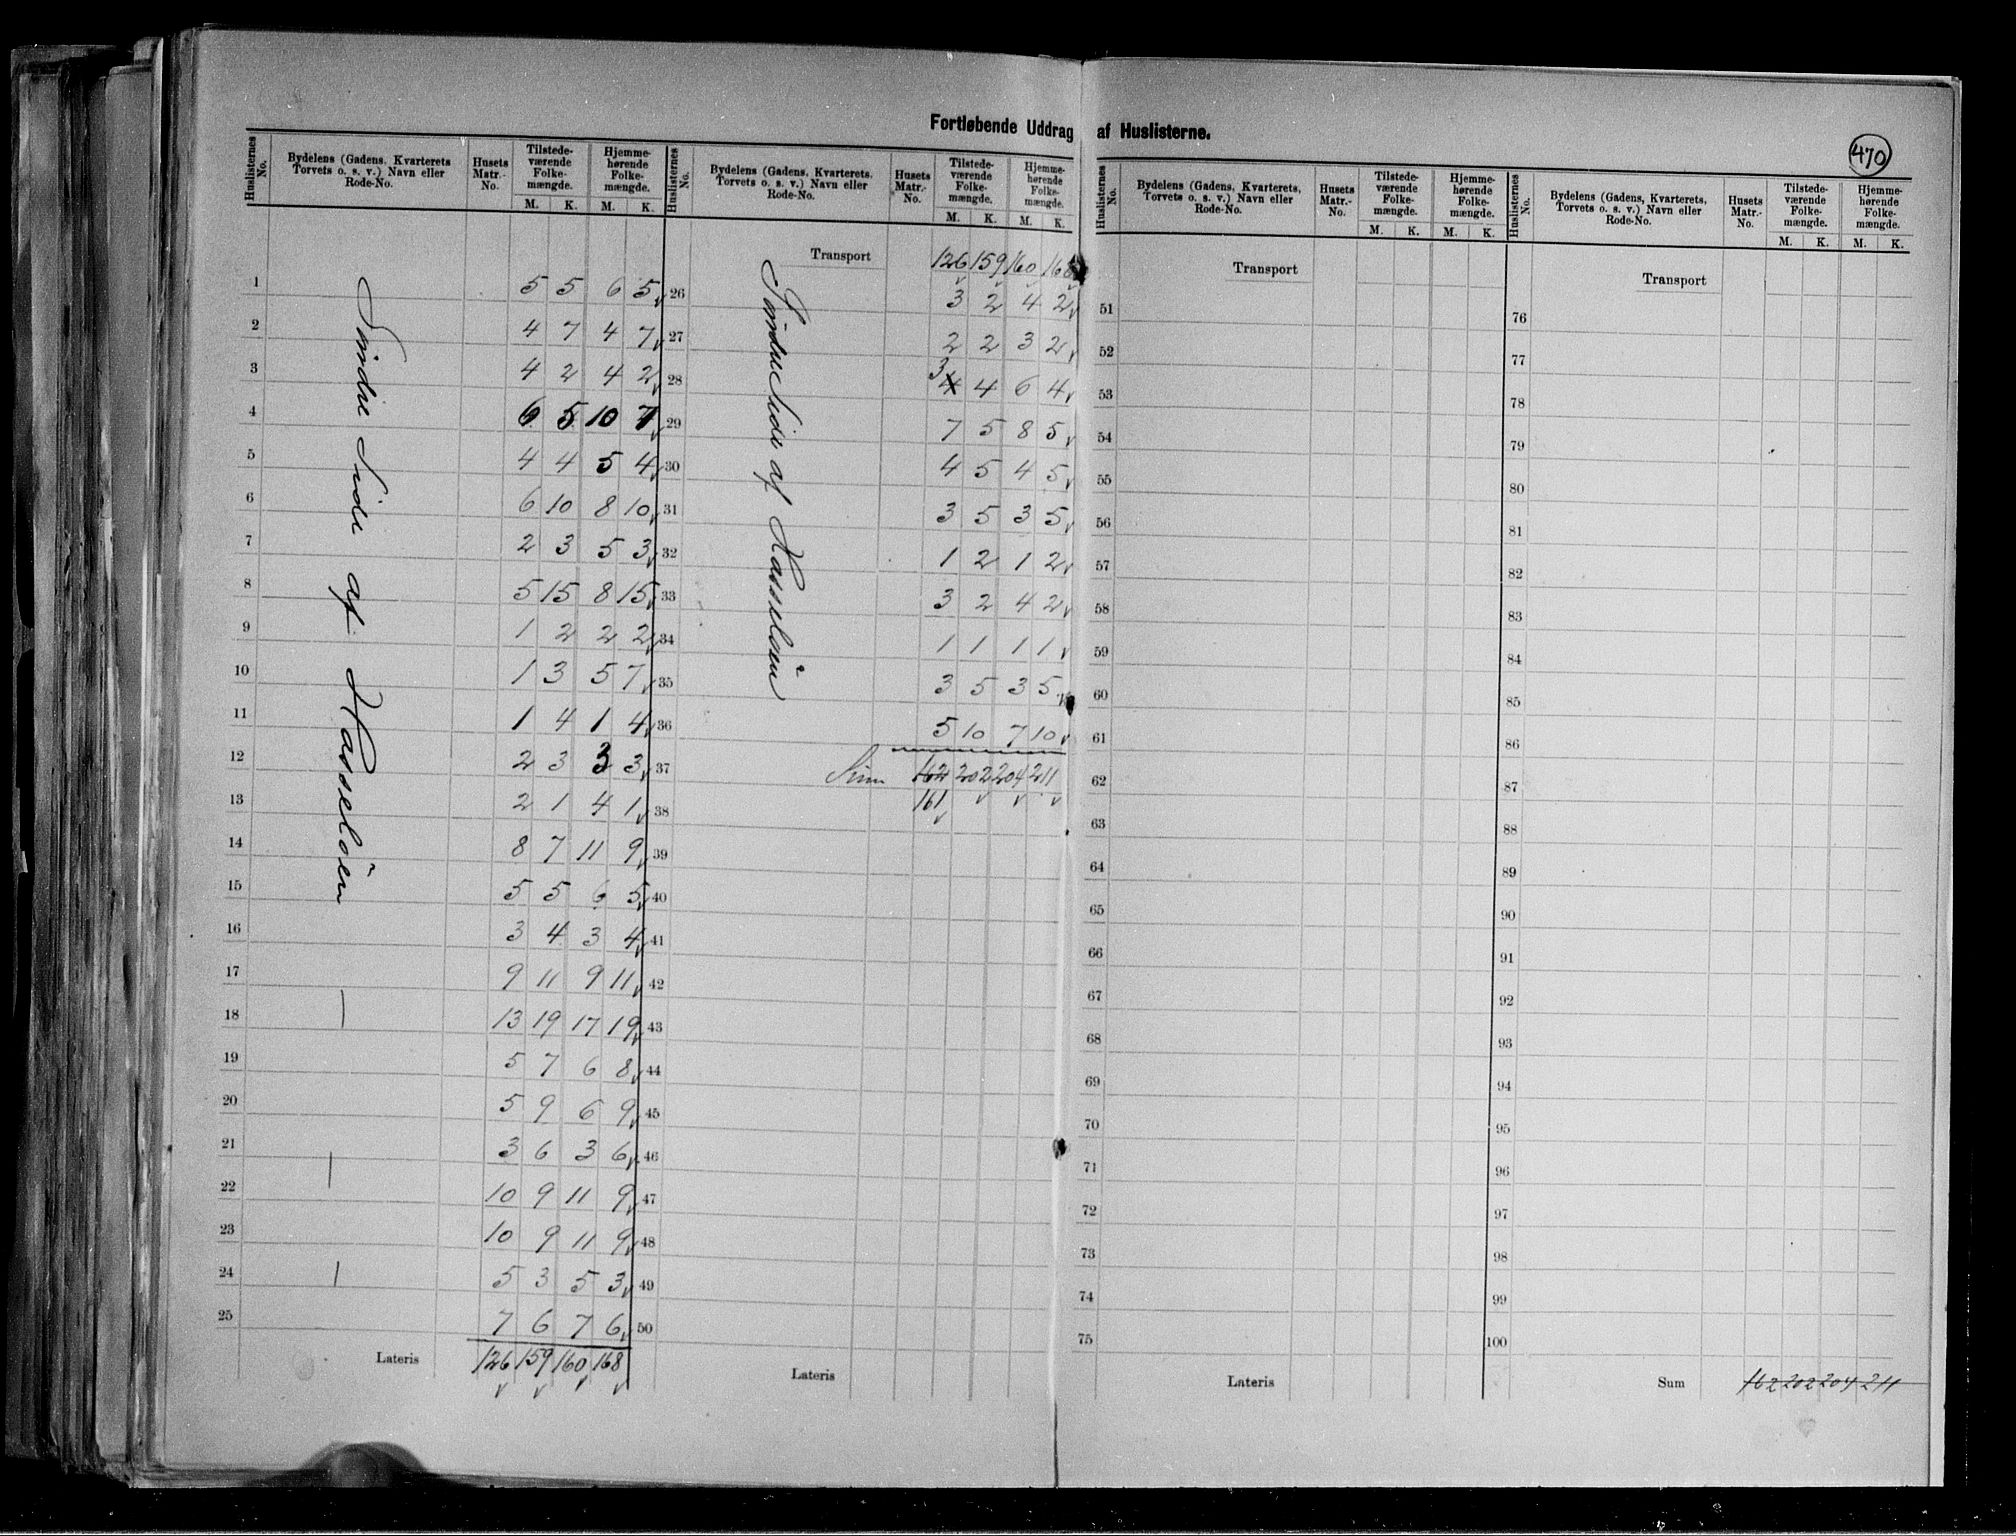 Fortløbende Uddrag af Huslisterne.
470
Huslisternes No. | Bydelens (Gadens, Kvarterets Torvets o. s. v.) Navn eller Rode-No. | Husets Matr.-No. | Tilstedeværende Folkemængde. M. K. | Hjemmehørende Folkemængde. M. K.
Søndre Side af Hasseløen
1 5 5 6 5
2 4 7 4 7
3 4 2 4 2
4 6 5 10 7
5 4 4 5 4
6 6 10 8 10
7 2 3 5 3
8 5 15 8 15
9 1 2 2 2
10 1 3 5 7
11 1 4 1 4
12 2 3 3 3
13 2 1 4 1
14 8 7 11 9
15 5 5 6 5
16 3 4 3 4
17 9 11 9 11
18 — 13 19 17 19
19 5 7 6 8
20 5 9 6 9
21 3 6 3 6
22 — 10 9 11 9
23 10 9 11 9
24 — 5 3 5 3
25 7 6 7 6
Lateris 126 159 160 168
Huslisternes No. | Bydelens (Gadens, Kvarterets, Torvets o. s. v.) Navn eller Rode-No. | Husets Matr.-No. | Tilstedeværende Folkemængde. M. K. | Hjemmehørende Folkemængde. M. K.
Transport 126 159 160 168
Søndre Side af Hasseløen
26 3 2 4 2
27 2 2 3 2
28 3 4 4 6 4
29 7 5 8 5
30 4 5 4 5
31 3 5 3 5
32 1 2 1 2
33 3 2 4 2
34 1 1 1 1
35 3 5 3 5
36 5 10 7 10
37 Sum 162 202 204 211
38 161
39
40
41
42
43
44
45
46
47
48
49
50
Lateris
Huslisternes No. | Bydelens (Gadens, Kvarterets, Torvets o. s. v.) Navn eller Rode-No. | Husets Matr.-No. | Tilstedeværende Folkemængde. M. K. | Hjemmehørende Folkemængde. M. K.
Transport
51
52
53
54
55
56
57
58
59
60
61
62
63
64
65
66
67
68
69
70
71
72
73
74
75
Lateris
Huslisternes No. | Bydelens (Gadens, Kvarterets, Torvets o. s. v.) Navn eller Rode-No. | Husets Matr.-No. | Tilstedeværende Folkemængde. M. K. | Hjemmehørende Folkemængde. M. K.
Transport
76
77
78
79
80
81
82
83
84
85
86
87
88
89
90
91
92
93
94
95
96
97
98
99
100
Sum 162 202 204 211